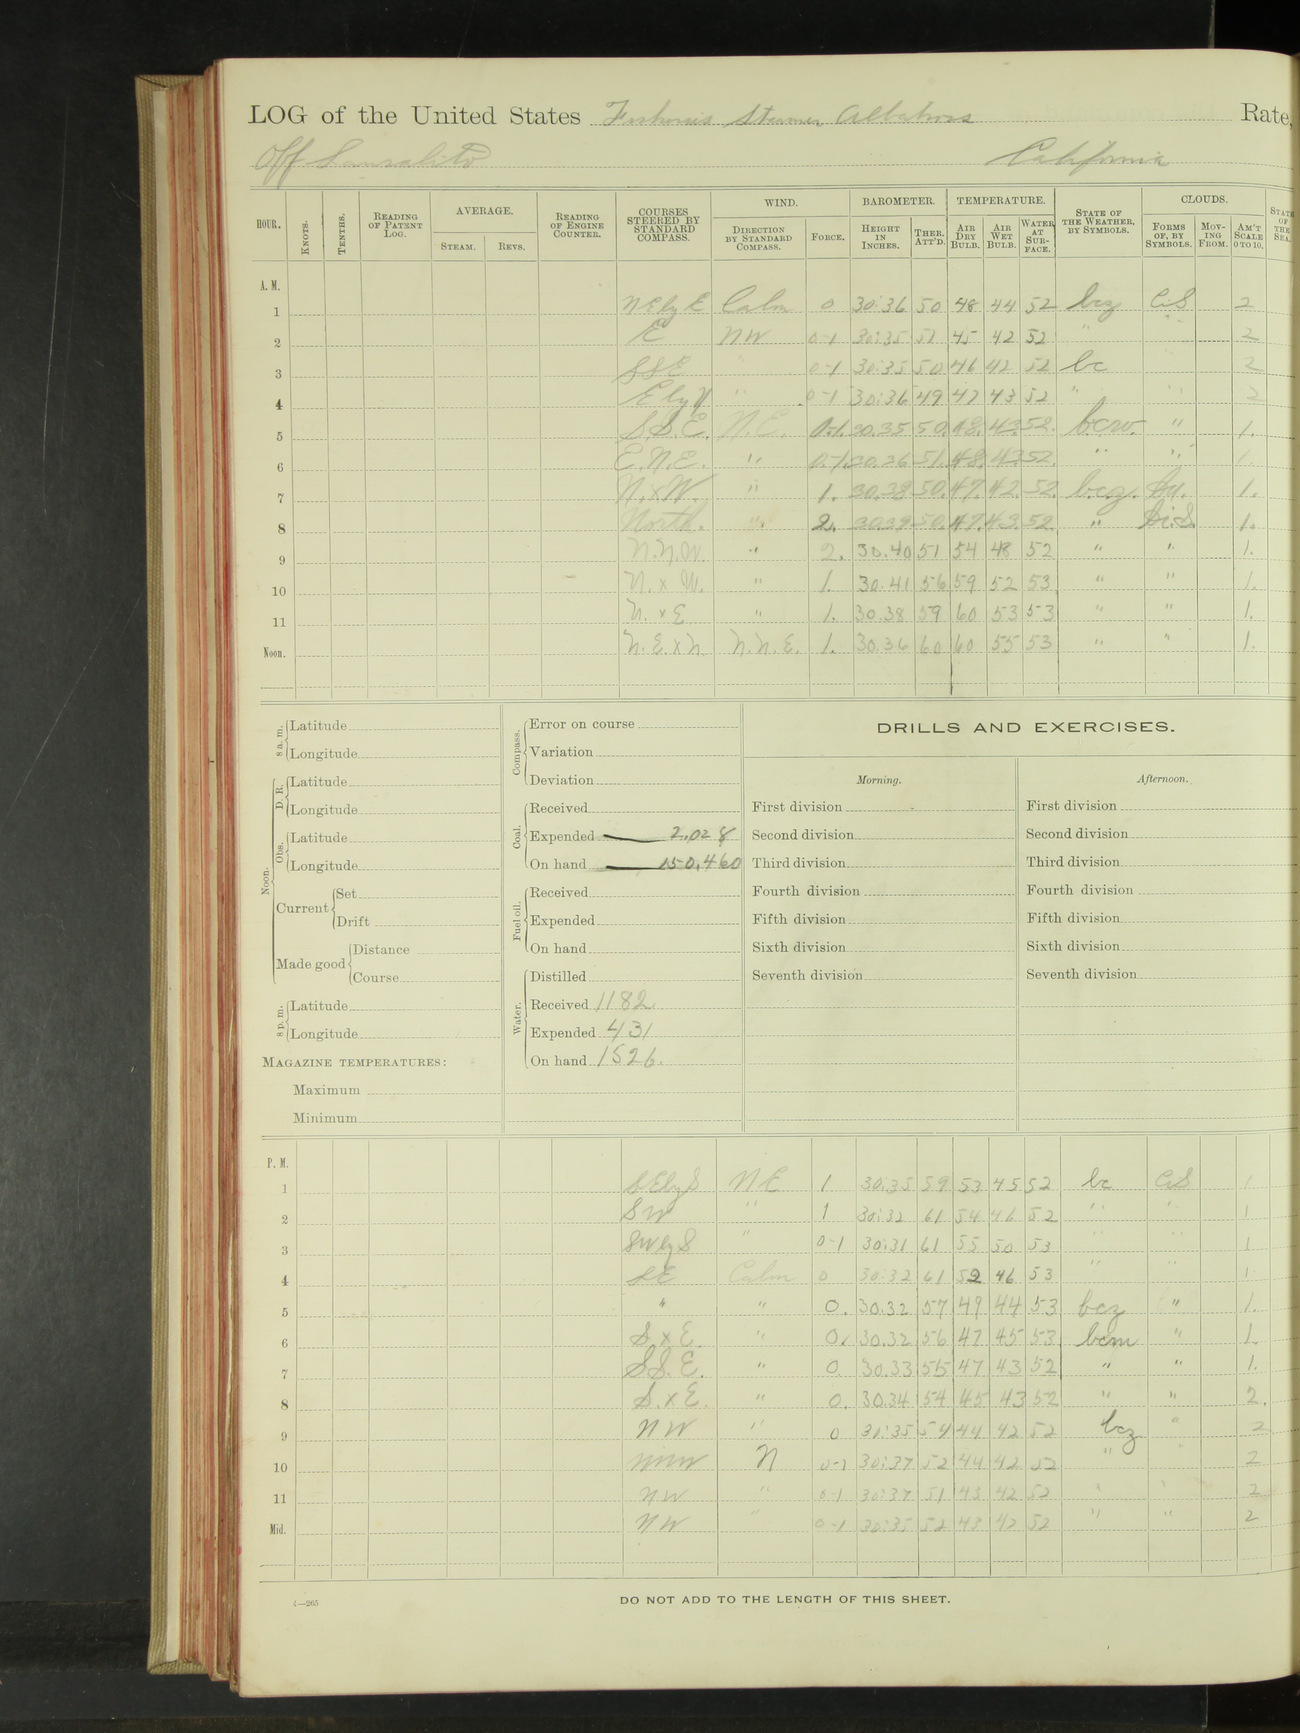 LOG of the United States Fisheries Steamer Albatross Rate,
Off Sausalito California
HOUR. KNOTS. TENTHS. READING OF PATENT LOG. AVERAGE. STEAM. REVS. READING OF ENGINE COUNTER. COURSES STEERED BY STANDARD COMPASS. WIND. DIRECTION BY STANDARD COMPASS. FORCE. BAROMETER. HEIGHT IN INCHES. THER. ATT'D. TEMPERATURE. AIR DRY BULB. AIR WET BULB. WATER AT SURFACE. STATE OF THE WEATHER, BY SYMBOLS. CLOUDS. FORMS OF, BY SYMBOLS. MOVING FROM. AM'T SCALE 0 TO 10. STATE OF THE SEA.
A. M.
1 NE by E Calm 0 30:36 50 48 44 52 bcz CiS 2
2 E NW 0-1 30:35 51 45 42 52 " " 2
3 SSE " 0-1 30:35 50 46 42 52 bc 2
4 E by N " 0-1 30:36 49 47 43 52 " " 2
5 S.S.E. N.E. 0.-1. 30.35 50. 48. 43. 52. bcw. " 1.
6 E.N.E. " 0.-1. 30.36 51. 48. 43. 52. " " 1.
7 N.xW. " 1. 30.38. 50. 47. 42. 52. bcz. 1.
8 North. " 2. 30.39 50. 47. 43. 52 " Ci.S. 1.
9 N.N.W. " 2. 30.40 51 54 48 52 " " 1.
10 N. x W. " 1. 30.41 56 59 52 53 " " 1.
11 N. x E " 1. 30.38 59 60 53 53 " " 1.
Noon. N.E. x N. N.N.E. 1. 30.36 60 60 55 53 " " 1.
8 a. m. Latitude
Longitude
Noon. D. R. Latitude
Longitude
Obs. Latitude
Longitude
Current Set
Drift
Made good Distance
Course
8 p. m. Latitude
Longitude
MAGAZINE TEMPERATURES:
Maximum
Minimum
Compass. Error on course
Variation
Deviation
Coal. Received
Expended 2,028
On hand 150,460
Fuel oil. Received
Expended
On hand
Water. Distilled
Received 1182.
Expended 431
On hand 1526.
DRILLS AND EXERCISES.
Morning. Afternoon.
First division First division
Second division Second division
Third division Third division
Fourth division Fourth division
Fifth division Fifth division
Sixth division Sixth division
Seventh division Seventh division
P. M.
1 SE by S NE 1 30:35 59 53 45 52 bc CiS 1
2 SW " 1 30:32 61 54 46 52 " " 1
3 SW by S " 0-1 30:31 61 55 50 53 " " 1
4 SE Calm 0 30:32 61 52 46 53 " " 1
5 " " 0. 30.32 57 49 44 53 bcz " 1.
6 S. x E. " 0. 30.32 56 47 45 53 bcm " 1.
7 S.S.E. " 0. 30.33 55 47 43 52 " " 1.
8 S. x E. " 0. 30.34 54 45 43 52 " " 2.
9 NW " 0 30:35 54 44 42 52 bcz " 2
10 NNW N 0-1 30:37 52 44 42 52 " " 2
11 NW " 0-1 30:37 51 43 42 52 " " 2
Mid. NW " 0-1 30:35 52 43 42 52 " " 2
4—265 DO NOT ADD TO THE LENGTH OF THIS SHEET.